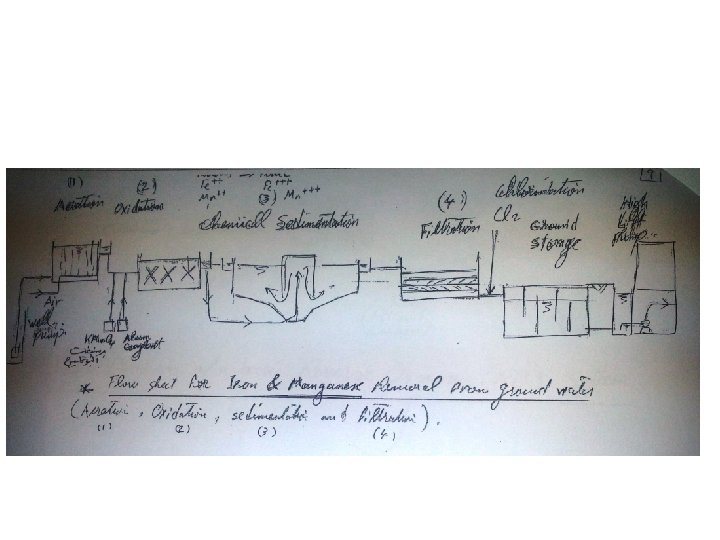 (1)
Aeration
(2)
Oxidation
Fe++ Fe+++
Mn++ (3) Mn+++
chemical Sedimentation
(4)
Filtration
Chlorination
Cl2
Ground
Storage
High
Lift
pump
Air
well
pump
KMnO4
Alum
Coagulant
* Flow sheet for Iron & Manganese Removal from ground water
(Aeration, Oxidation, sedimentation and filtration).
(1) (2) (3) (4)